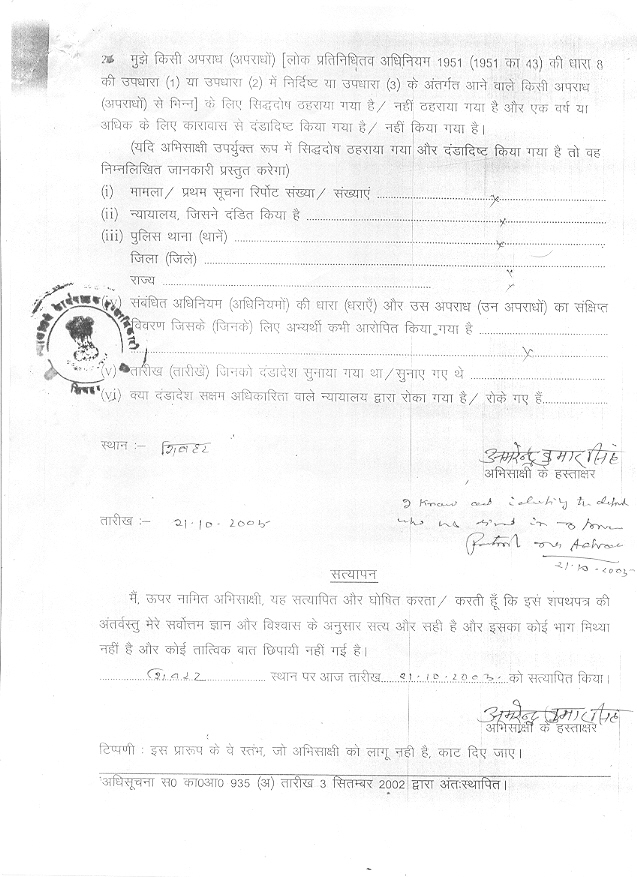 2 मुझे किसी अपराध (अपराधों) [लोक प्रतिनिधितव अधिनियम 1951 (1951 का 43) की धारा 8
की उपधारा (1) या उपधारा (2) में निर्दिष्ट या उपधारा (3) के अंतर्गत आने वाले किसी अपराध
(अपराधों) से भिन्न] के लिए सिद्धदोष ठहराया गया है / नहीं ठहराया गया है और एक वर्ष या
अधिक के लिए कारावास से दंडादिष्ट किया गया है / नहीं किया गया है।
(यदि अभिसाक्षी उपर्युक्त रूप में सिद्धदोष ठहराया गया और दंडादिष्ट किया गया है तो वह
निम्नलिखित जानकारी प्रस्तुत करेगा)
(i) मामला / प्रथम सूचना रिर्पोट संख्या / संख्याएं .......... x
(ii) न्यायालय, जिसने दंडित किया है .......... x
(iii) पुलिस थाना (थानें) .......... x
जिला (जिले) ..........
राज्य .......... x
(iv) संबंधित अधिनियम (अधिनियमों) की धारा (धराएँ) और उस अपराध (उन अपराधों) का संक्षिप्त
विवरण जिसके (जिनके) लिए अभ्यर्थी कभी आरोपित किया गया है ..........
.......... x
(v) तारीख (तारीखें) जिनको दंडादेश सुनाया गया था / सुनाए गए थे ..........
(vi) क्या दंडादेश सक्षम अधिकारिता वाले न्यायालय द्वारा रोका गया है / रोके गए हैं..........
स्थान :– शिवहर
अमरेन्द्र कुमार सिंह
अभिसाक्षी के हस्ताक्षर
I know and identify the
who signed in my
तारीख :– 21·10·2005
21·10·2005
सत्यापन
मैं, ऊपर नामित अभिसाक्षी, यह सत्यापित और घोषित करता / करती हूँ कि इस शपथपत्र की
अंतर्वस्तु मेरे सर्वोत्तम ज्ञान और विश्वास के अनुसार सत्य और सही है और इसका कोई भाग मिथ्या
नहीं है और कोई तात्विक बात छिपायी नहीं गई है।
..........शिवहर.......... स्थान पर आज तारीख....21·10·2005....को सत्यापित किया।
अमरेन्द्र कुमार सिंह
अभिसाक्षी के हस्ताक्षर
टिप्पणी : इस प्रारूप के वे स्तंभ, जो अभिसाक्षी को लागू नही है, काट दिए जाए।
अधिसूचना स0 का0आ0 935 (अ) तारीख 3 सितम्बर 2002 द्वारा अंतःस्थापित।